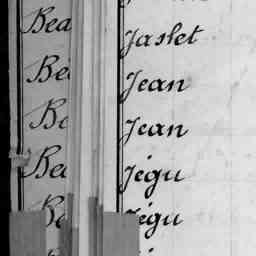 Bea
Jaslet
Be
Jean
Be
Jean
Bea
Jégu
Be
Jégu